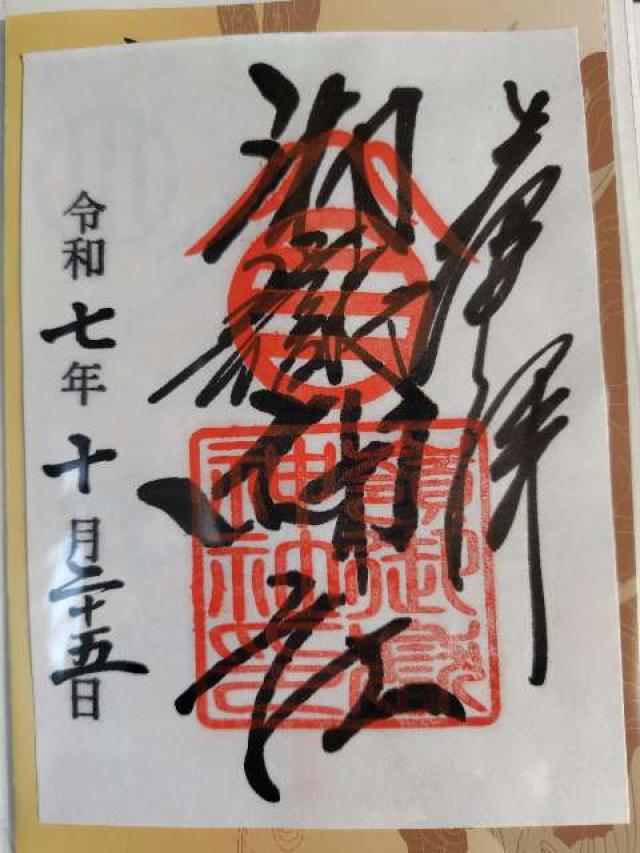 奉拝
御嶽神社
御嶽
神社印
令和七年十月二十五日